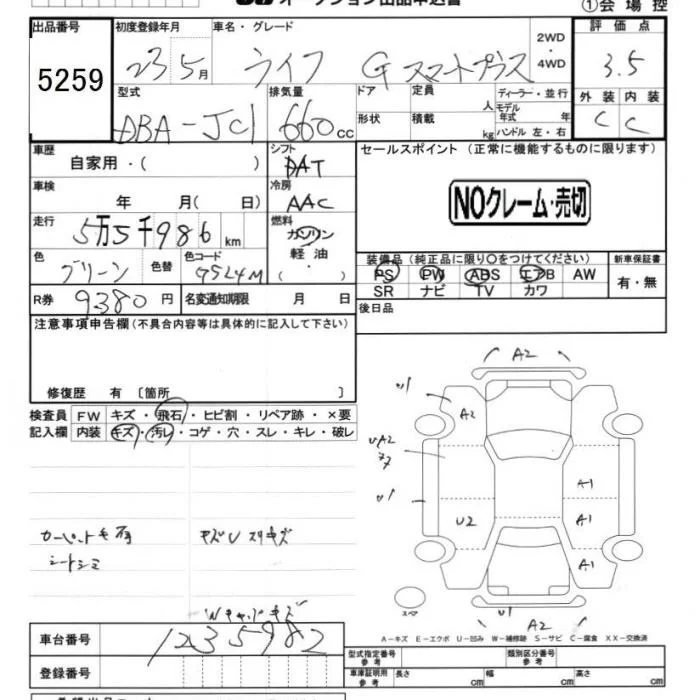 オークション出品申込書 ①会場控
出品番号 初度登録年月 車名・グレード 2WD・4WD 評価点
5259 23 5月 ライフ G スマートプラス 3.5
型式 排気量 ドア 定員 人 ディーラー・並行 外装 内装
DBA-JC1 660cc 形状 積載 kg モデル年式 年 ハンドル 左・右 C C
車歴 自家用・( ) シフト DAT セールスポイント (正常に機能するものに限ります)
車検 年 月( 日) 冷房 AAC NOクレーム・売切
走行 5万5千986km 燃料 ガソリン 軽油 ・( )
色 グリーン 色替 色コード G524M 装備品 (純正品に限り〇をつけてください) 新車保証書
PS PW ABS エアB AW 有・無
SR ナビ TV カワ
R券 9380円 名変通知期限 月 日 後日品
注意事項申告欄(不具合内容等は具体的に記入して下さい)
修復歴 有 〔箇所 〕
検査員 FW キズ・飛石・ヒビ割・リペア跡・×要
記入欄 内装 キズ・汚レ・コゲ・穴・スレ・キレ・破レ
A2
U1
A2
UA2
U1
U2
A1
A1
A1
U1
カーペット
シートシミ
キズU スリキズ
スペア
A-キズ E-エクボ U-凹み W-補修跡 S-サビ C-腐食 XX-交換済
車台番号 1235982
登録番号
型式指定番号 参考 類別区分番号 参考
車庫証明用 参考 長さ cm 幅 cm 高さ cm